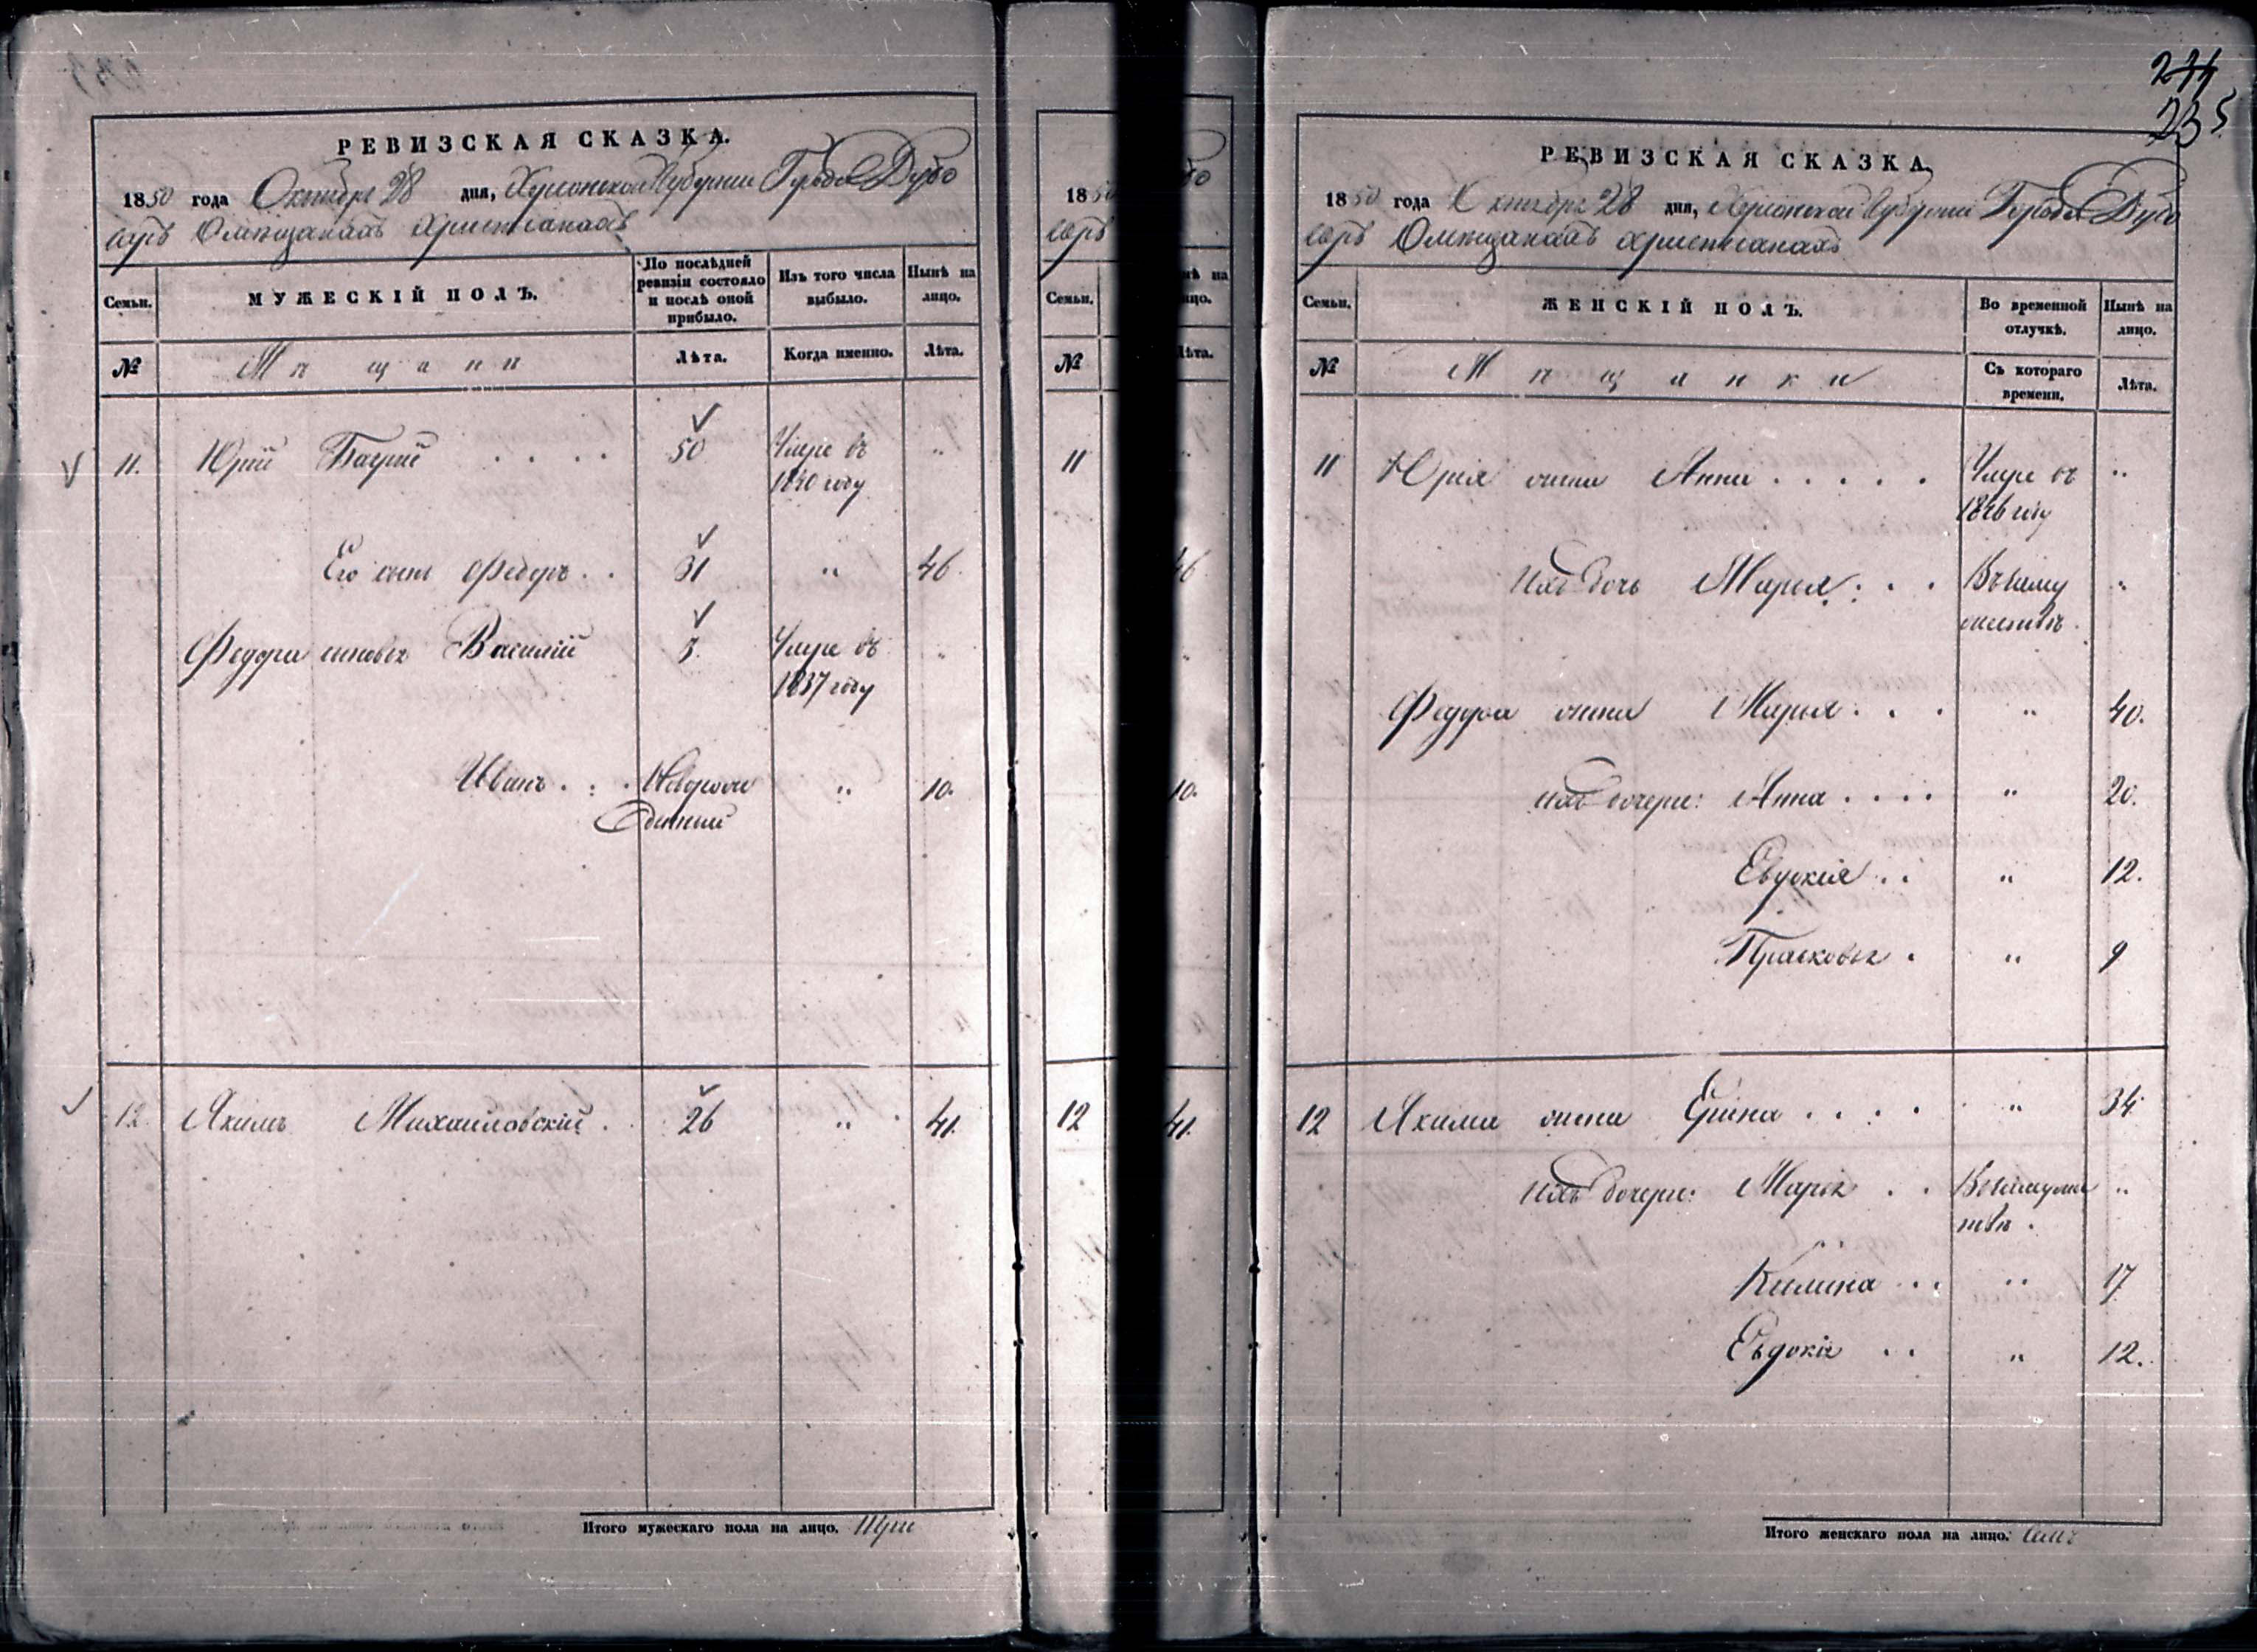 РЕВИЗСКАЯ СКАЗКА.
1850 года Октября 28 дня, Херсонской Губерніи Города Дубо
саръ О мещанахъ христіанахъ
Семьи. МУЖЕСКІЙ ПОЛЪ. По послѣдней ревизіи состояло и послѣ оной прибыло. Изъ того числа выбыло. Нынѣ на лицо.
№ Мещани Лѣта. Когда именно. Лѣта.
11. Юрій 50 Умре въ „
1840 году
Его сынъ Федоръ 31 „ 46.
Федора сыновья Василій 3. Умре въ „
1837 году
Иванъ Новорож „ 10.
денный
12. Якимъ Михайловскій 26 „ 41.
Итого мужескаго пола на лицо. Три
1850
саръ
Семьи.
№
11
46
10.
12 41.
234
235
РЕВИЗСКАЯ СКАЗКА.
1850 года Октября 28 дня, Херсонской Губерніи Города Дубо
саръ О мещанахъ христіанахъ
Семьи. ЖЕНСКІЙ ПОЛЪ. Во временной отлучкѣ. Нынѣ на лицо.
№ Мещанки Съ котораго времени. Лѣта.
11 Юрія жена Анна Умре въ „
1846 году
Ихъ дочь Марья Въ заму „
жестве.
Федора жена Марья „ 40.
ихъ дочери: Анна „ 20.
Евдокія „ 12.
Прасковья „ 9
12 Якима жена „ 34
Ихъ дочери: Марья Въ замуже „
стве.
Килина „ 17
Евдокія „ 12.
Итого женскаго пола на лицо: Семь